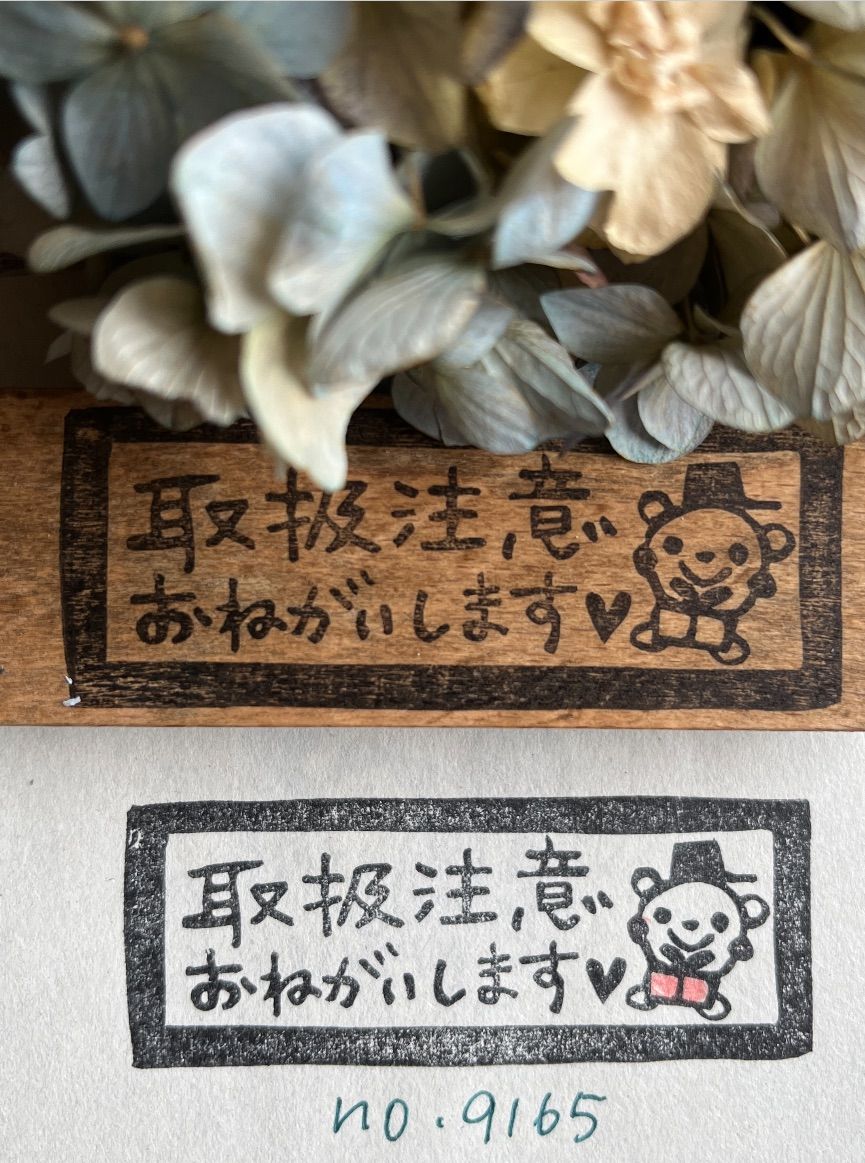 取扱注意
おねがいします♥
取扱注意
おねがいします♥
no.9165